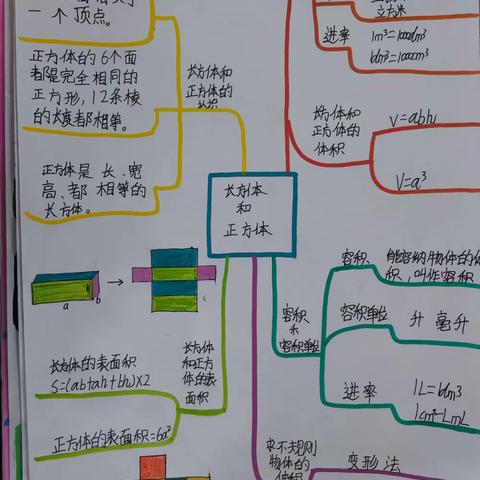 一个顶点。
正方体的6个面
都是完全相同的
正方形,12条棱
的长度都相等。
正方体是长、宽、
高、都相等的
长方体。
长方体和
正方体的
认识
长方体
和
正方体
立方米
进率
1m³=1000dm³
1dm³=1000cm³
长方体和
正方体的
体积
V=abh
V=a³
a
b
长方体的表面积
S=(ab+ah+bh)×2
正方体的表面积=6a²
长方体
和正方
体的表
面积
容积
和
容积单位
容积、
能容纳物体的体
积,叫作容积
容积单位
升 毫升
进率
1L=1dm³
1cm³=1mL
求不规则
物体的
体积
变形法